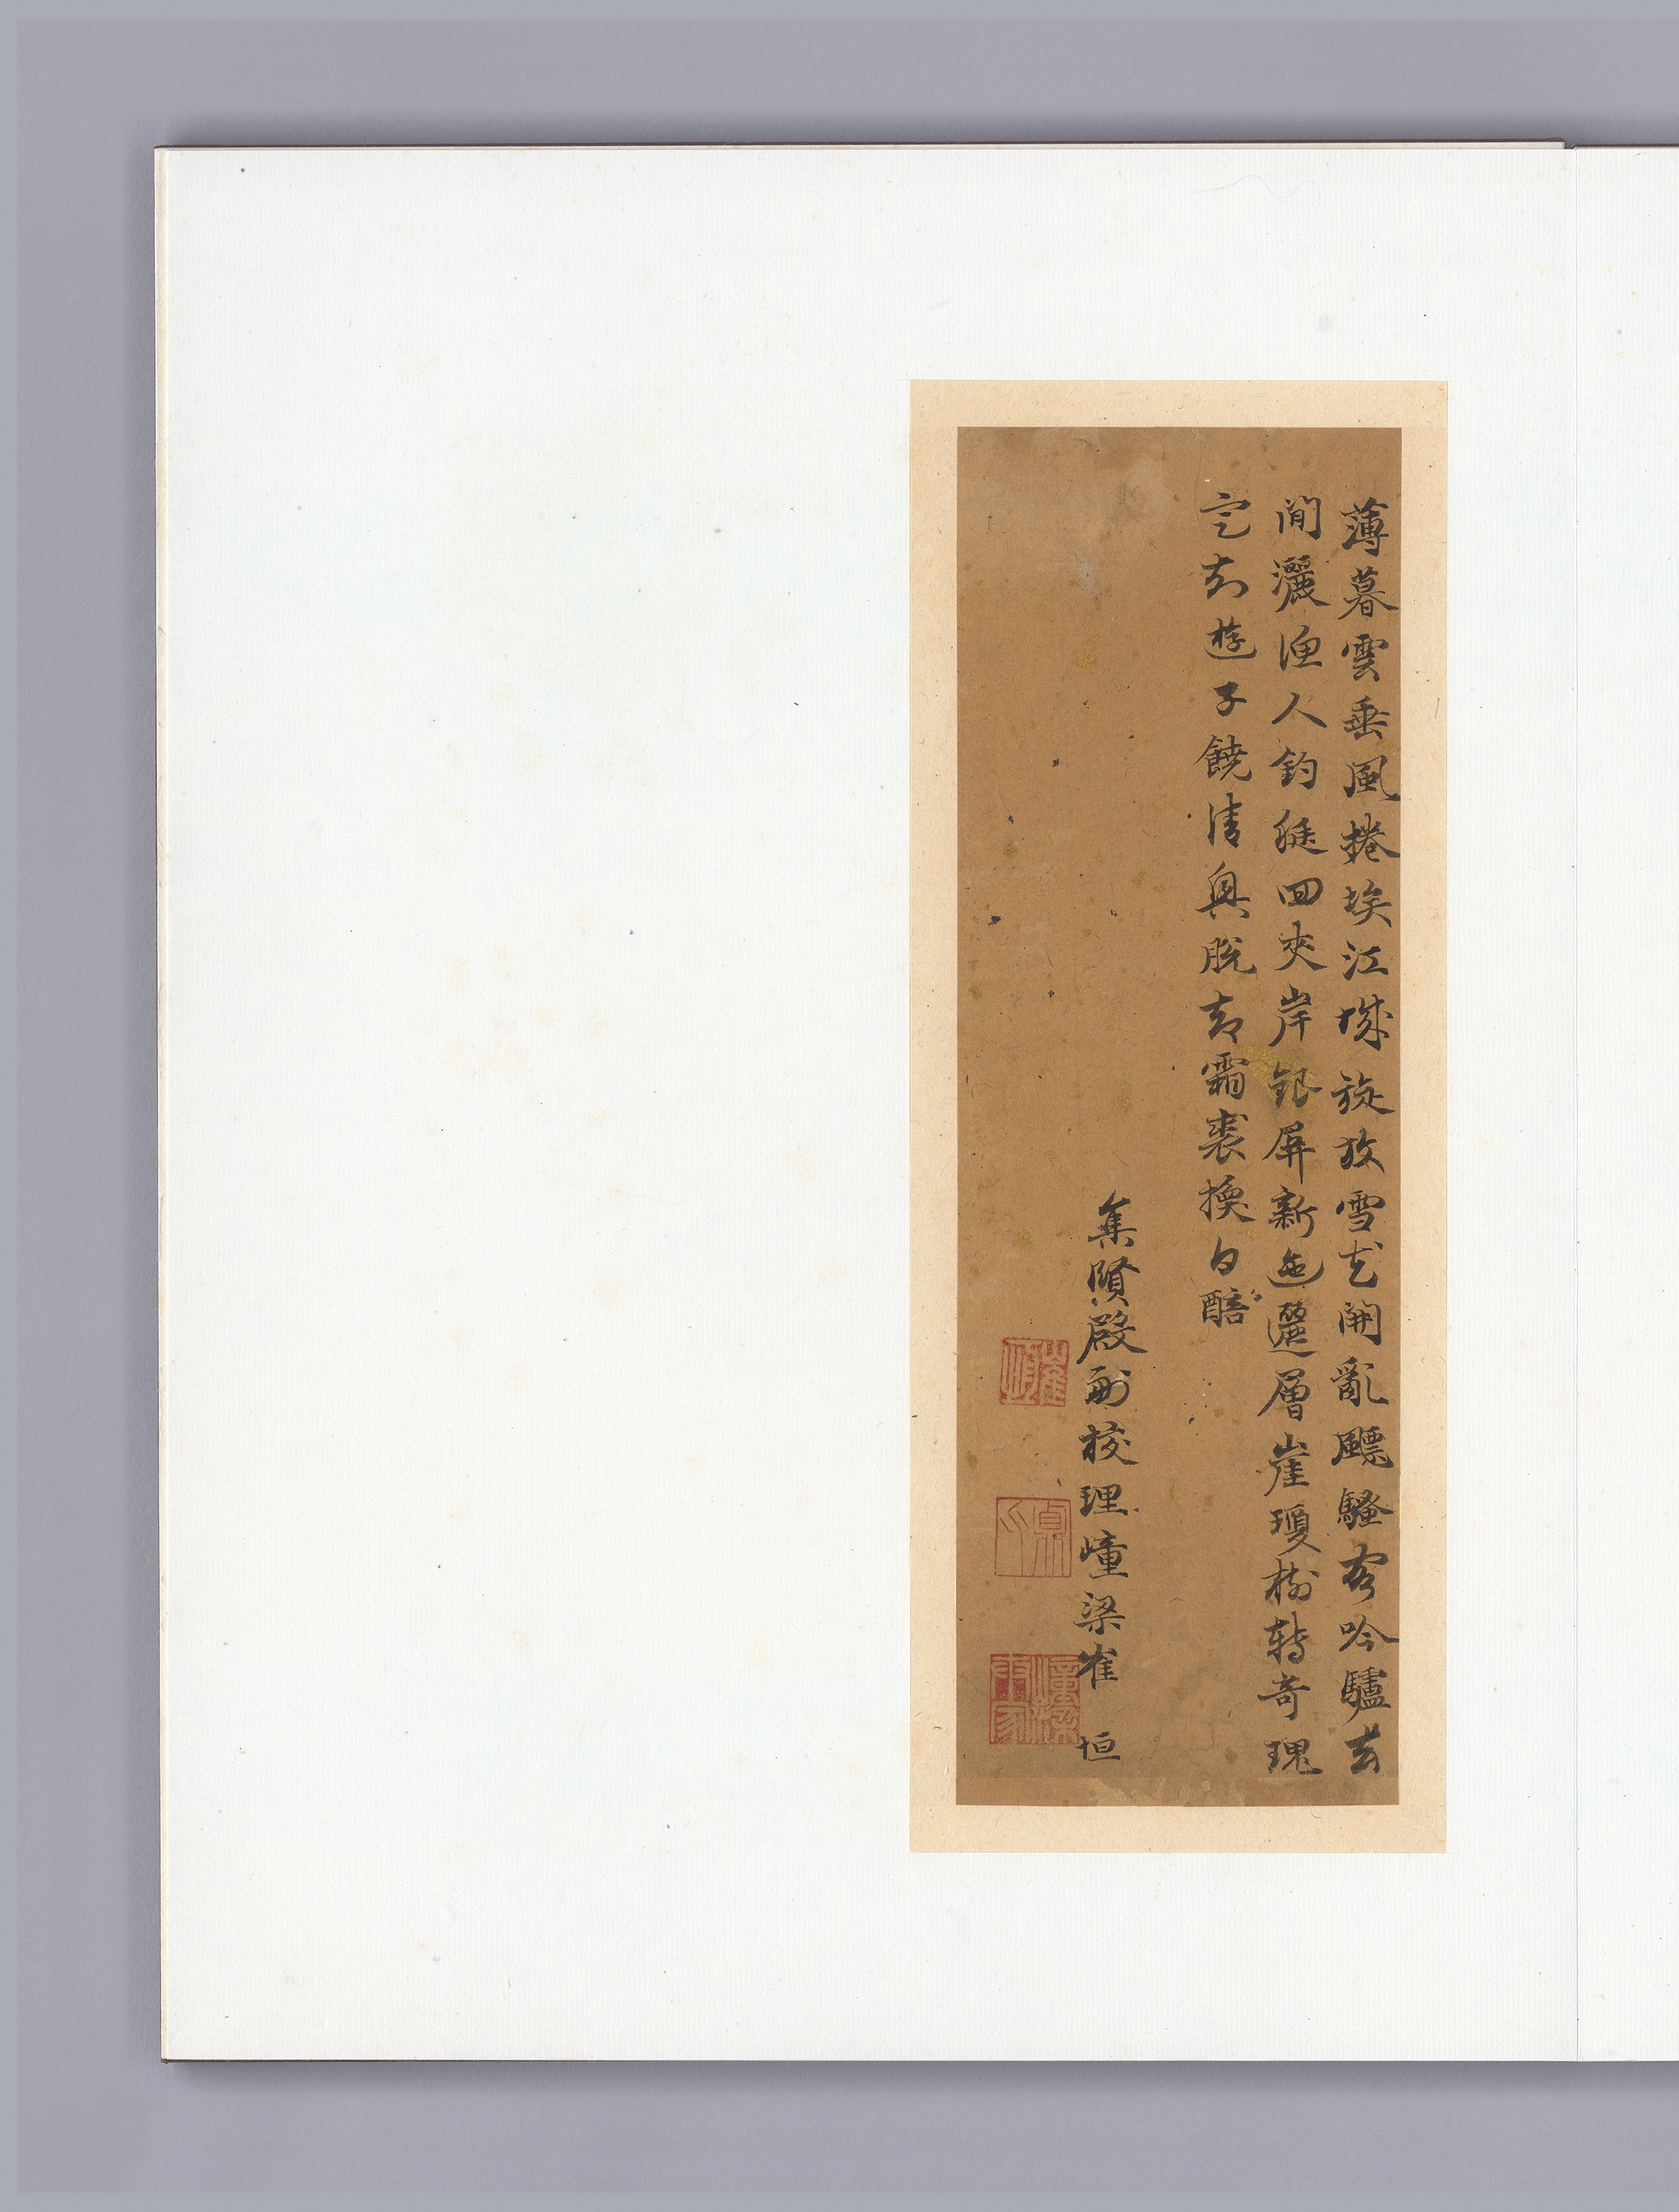 薄暮雲垂風捲埃江城旋放雪花開亂飄騷客吟驢去
閒灑漁人釣艇回夾岸銀屏新迤邐層崖瓊樹轉奇瑰
定知遊子饒清興脫却霜裘換白醅
集賢殿副校理㠉梁崔恒
崔恒
貞父